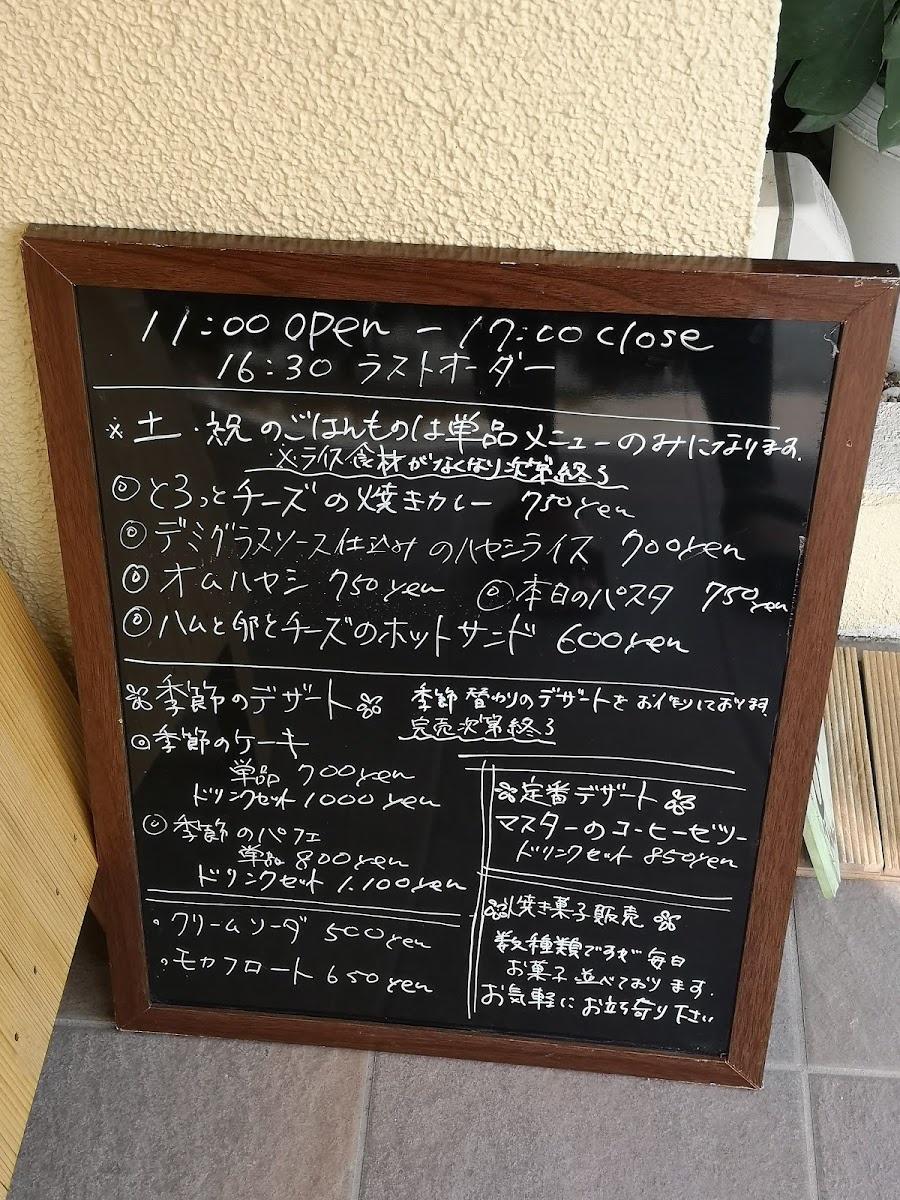 11:00 open - 17:00 close
16:30 ラストオーダー
※土・祝のごはんものは単品メニューのみになります。
※ライス食材がなくなり次第終了
◎とろっとチーズの焼きカレー 750yen
◎デミグラスソース仕込みのハヤシライス 700yen
◎オムハヤシ 750yen ◎本日のパスタ 750yen
◎ハムと卵とチーズのホットサンド 600yen
季節のデザート 季節替わりのデザートをお作りしております。
完売次第終了
◎季節のケーキ
単品 700yen
ドリンクセット 1000yen
◎季節のパフェ
単品 800yen
ドリンクセット 1,100yen
・クリームソーダ 500yen
・モカフロート 650yen
定番デザート
マスターのコーヒーゼリー
ドリンクセット 850yen
焼き菓子販売
数種類ですが毎日
お菓子並べております。
お気軽にお立ち寄り下さい